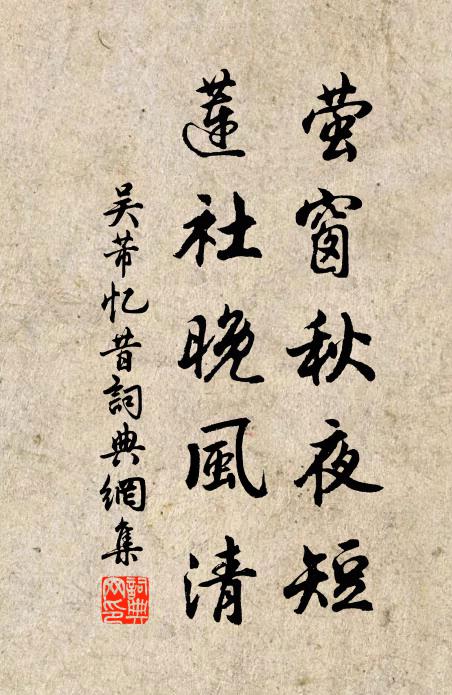 萤窗秋夜短
蓮社晚風清
吴芾忆昔詞典網集
詞典網印